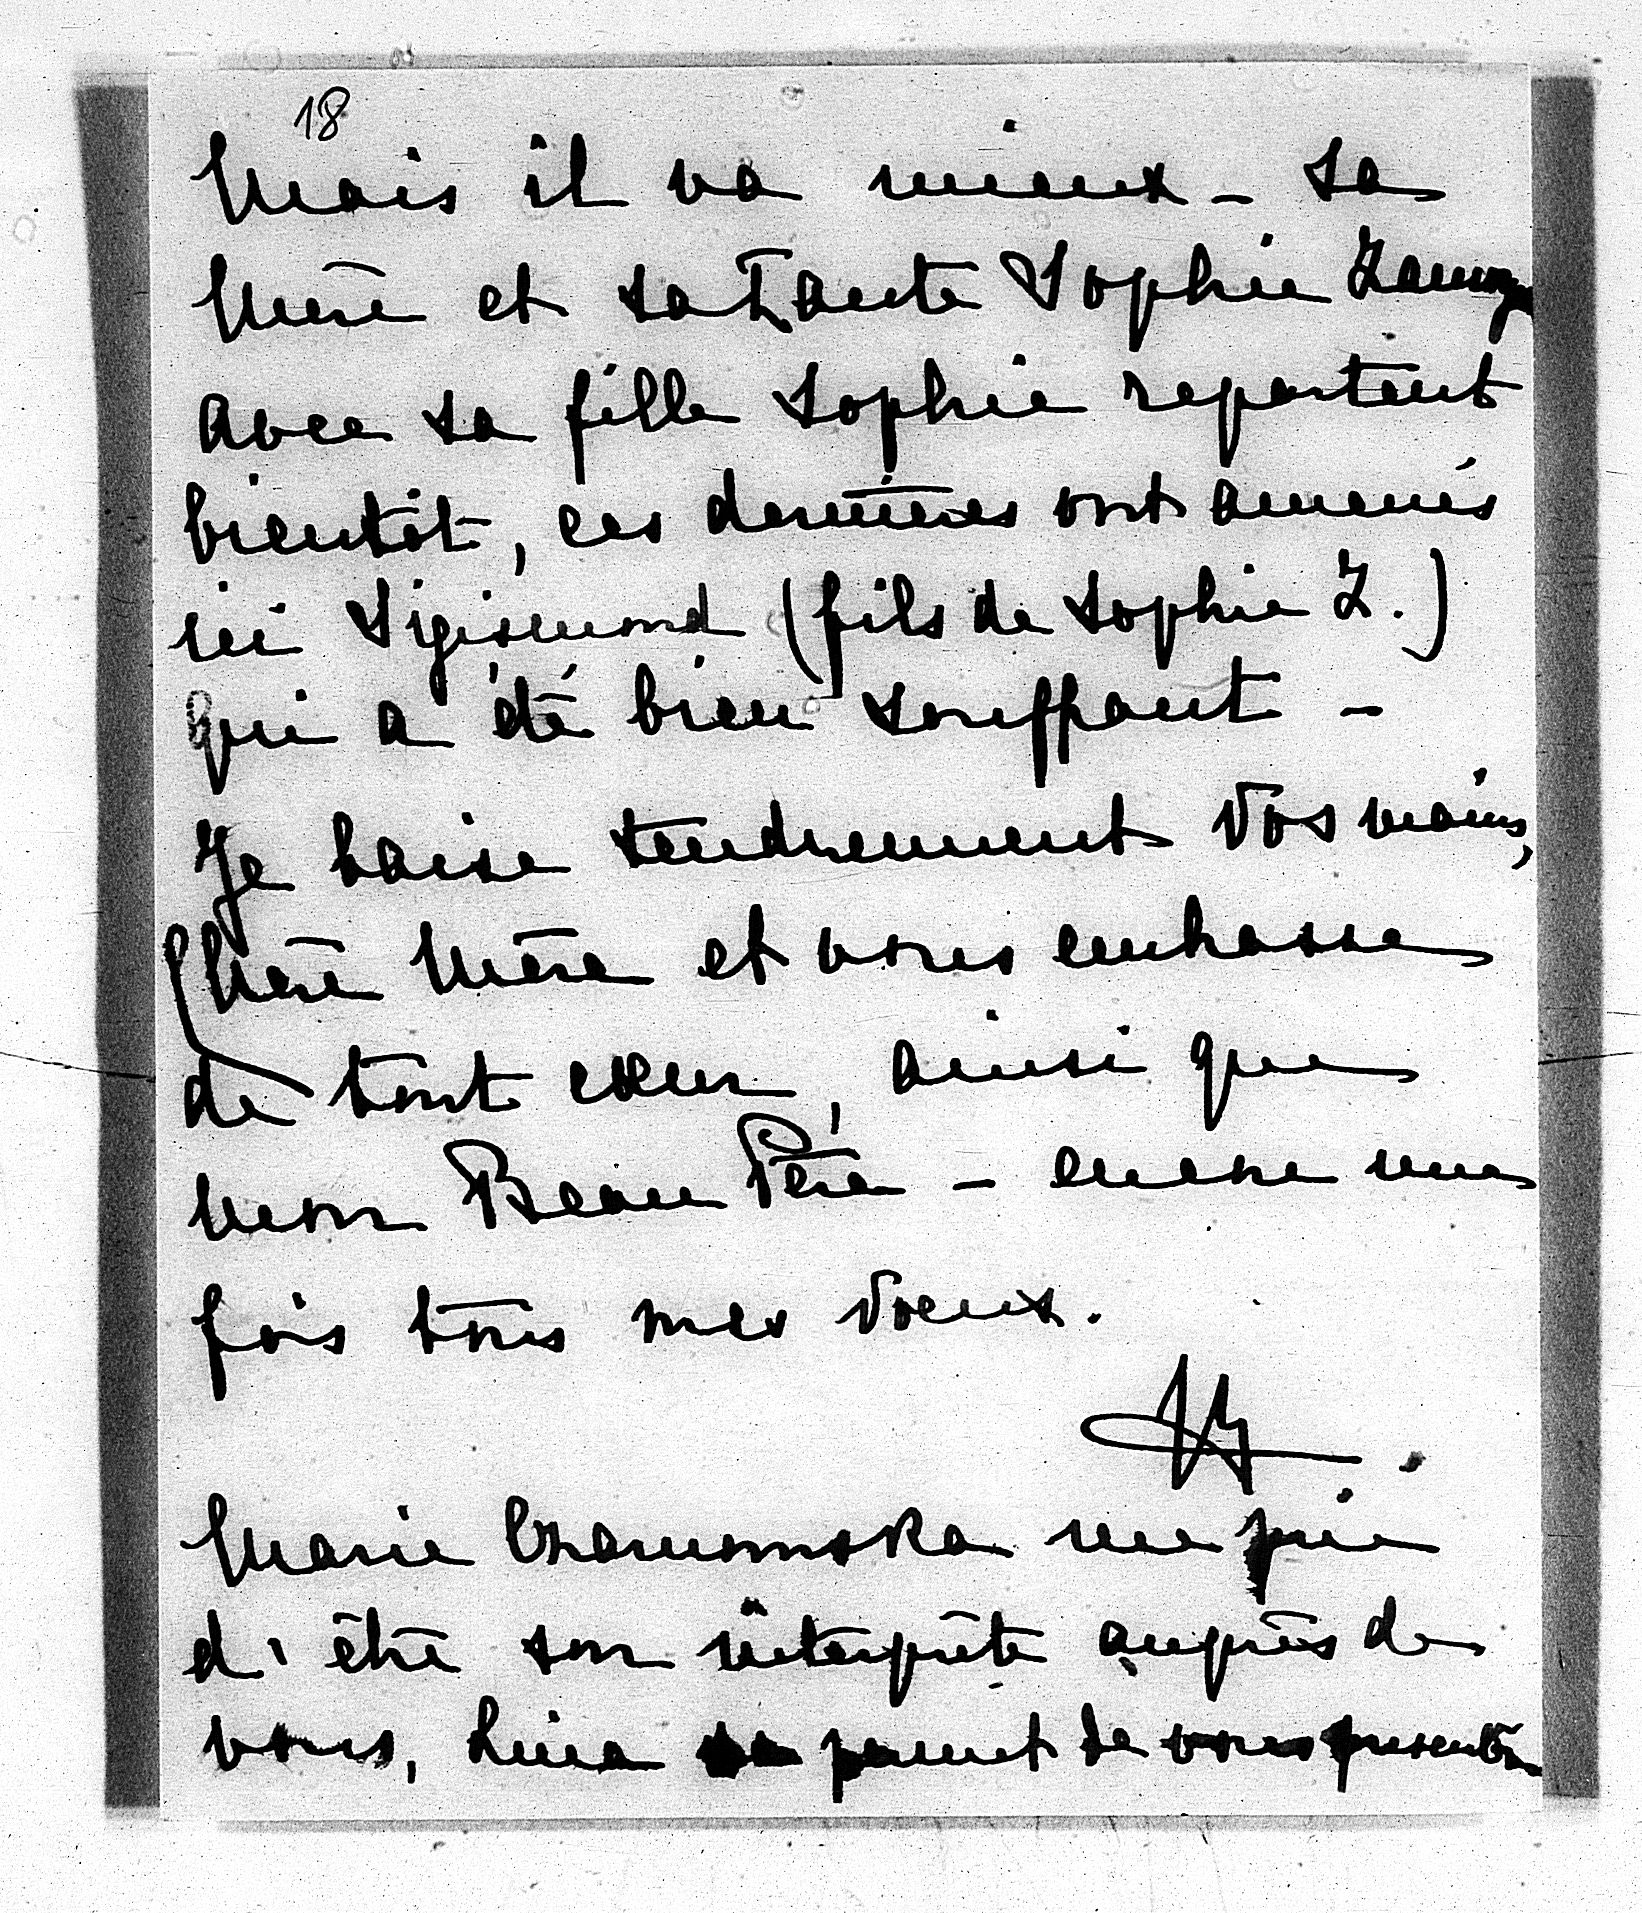 18
Mais il va mieux – sa
Mère et sa Tante Sophie Zamoy
avec sa fille Sophie repartent
bientôt, ces dernières ont amenés
ici Sigismond (fils de Sophie Z.)
qui a été bien souffrant –
Je baise tendrement Vos mains,
Chère Mère et vous embrasse
de tout cœur, ainsi que
mon Beau Père – encore une
fois tous mes vœux.
Marie Czarnomska me prie
d'être son interprète auprès de
vous, Luisa permet de vous présenter